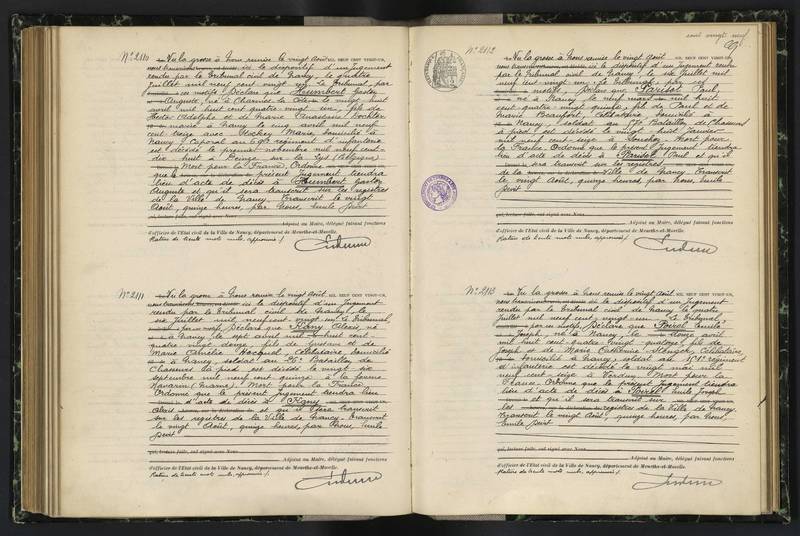 cent vingt neuf
N° 2110 Vu la grosse à Nous remise le vingt Août MIL NEUF CENT VINGT-UN,
ici le dispositif d'un jugement
rendu par le Tribunal civil de Nancy, le quatre
Juillet mil neuf cent vingt un. Le Tribunal, par
ces motifs, Déclare que Humbert Gaston
Auguste, né à Charmes la Côte le vingt huit
avril mil huit cent quatre vingt six, fils de
Adolphe et de Marie Anastasie
marié à Nancy le cinq avril mil neuf
cent seize avec Marie, domicilié à
Nancy, Caporal au 69e régiment d'infanterie
est décédé le premier novembre mil neuf cent
dix huit à sur la Lys (Belgique)
Mort pour la France. Ordonne
que le présent jugement tiendra
lieu d'acte de décès à Humbert Gaston
Auguste et qu'il sera transcrit sur les registres
de la Ville de Nancy. Transcrit le vingt
Août, quinze heures, par Nous, Emile
qui, lecture faite, ont signé avec Nous
Adjoint au Maire, délégué faisant fonctions
d'officier de l'Etat civil de la Ville de Nancy, département de Meurthe-et-Moselle.
Rature de trente mots nuls, approuvée /
N° 2111 Vu la grosse à Nous remise le vingt Août MIL NEUF CENT VINGT-UN,
ici le dispositif d'un jugement
rendu par le Tribunal civil de Nancy, le
six Juillet mil neuf cent vingt un. Le Tribunal,
par ces motifs, Déclare que Alexis, né
à Nancy, le sept avril mil huit cent
quatre vingt douze, fils de Gustave et de
Marie Amélie Hocquel Célibataire, domicilié
à Nancy, soldat au 26e Bataillon de
Chasseurs à pied, est décédé le vingt six
septembre mil neuf cent quinze à la ferme
Navarin (Marne). Mort pour la France.
Ordonne que le présent jugement tiendra lieu
d'acte de décès à
Alexis et qu'il sera transcrit
sur les registres de la Ville de Nancy. Transcrit
le vingt Août, quinze heures, par Nous, Emile
qui, lecture faite, ont signé avec Nous
Adjoint au Maire, délégué faisant fonctions
d'officier de l'Etat civil de la Ville de Nancy, département de Meurthe-et-Moselle.
Rature de trente mots nuls, approuvée /
N° 2112 Vu la grosse à Nous remise le vingt Août MIL NEUF CENT VINGT-UN,
ici le dispositif d'un jugement rendu
par le Tribunal civil de Nancy, le six Juillet mil
neuf cent vingt un. Le Tribunal, par ces
motifs, Déclare que Parisot Paul,
né à Nancy, le neuf mars mil huit
cent quatre vingt quatre, fils de Paul et de
Marie Beaufort, Célibataire, domicilié à
Nancy, soldat au Bataillon de Chasseurs
à pied, est décédé le vingt huit janvier
mil neuf cent seize à Souchez. Mort pour
la France. Ordonne que le présent jugement tiendra
lieu d'acte de décès à Parisot Paul et qu'il
sera transcrit sur les registres
de la Ville de Nancy. Transcrit
le vingt Août, quinze heures, par Nous, Emile
qui, lecture faite, ont signé avec Nous
Adjoint au Maire, délégué faisant fonctions
d'officier de l'Etat civil de la Ville de Nancy, département de Meurthe-et-Moselle.
Rature de trente mots nuls, approuvée /
N° 2113 Vu la grosse à Nous remise le vingt Août MIL NEUF CENT VINGT-UN,
ici le dispositif d'un jugement
rendu par le Tribunal civil de Nancy le quatre
Juillet mil neuf cent vingt un. Le Tribunal,
par ces motifs, Déclare que Poirel Emile
Joseph, né à Nancy, le douze août
mil huit cent quatre vingt quatorze, fils de
Joseph et de Marie Catherine Célibataire,
domicilié à Nancy, soldat au régiment
d'infanterie est décédé le vingt mai mil
neuf cent seize à Verdun. Mort pour la
France. Ordonne que le présent jugement tiendra
lieu d'acte de décès à Poirel Emile Joseph
et qu'il sera transcrit sur
les registres de la Ville de Nancy.
Transcrit le vingt Août, quinze heures, par Nous,
Emile
qui, lecture faite, ont signé avec Nous
Adjoint au Maire, délégué faisant fonctions
d'officier de l'Etat civil de la Ville de Nancy, département de Meurthe-et-Moselle.
Rature de trente mots nuls, approuvée /